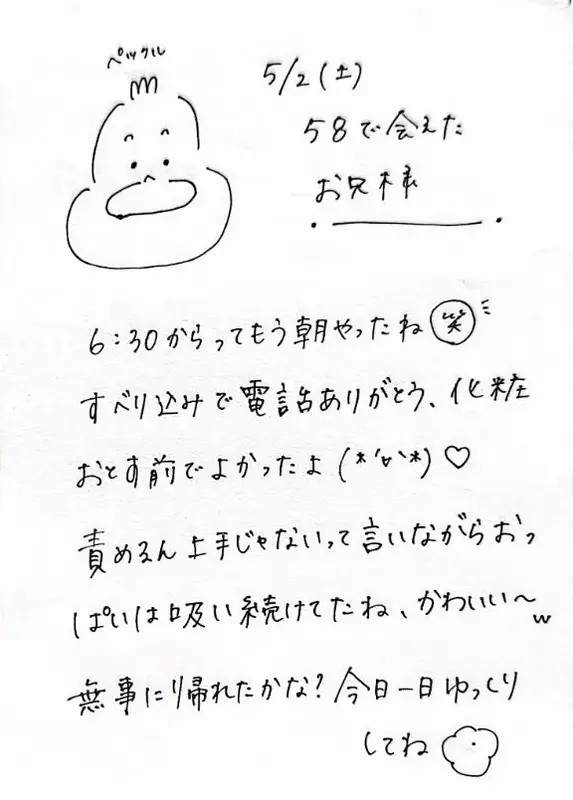 ペックル
5/2(土)
58で会えた
お兄様
6:30からってもう朝やったね笑
すべり込みで電話ありがとう、化粧
おとす前でよかったよ(*'▽`*)♡
責めるん上手じゃないって言いながらおっ
ぱいは吸い続けてたね、かわいい〜w
無事に帰れたかな?今日一日ゆっくり
してね